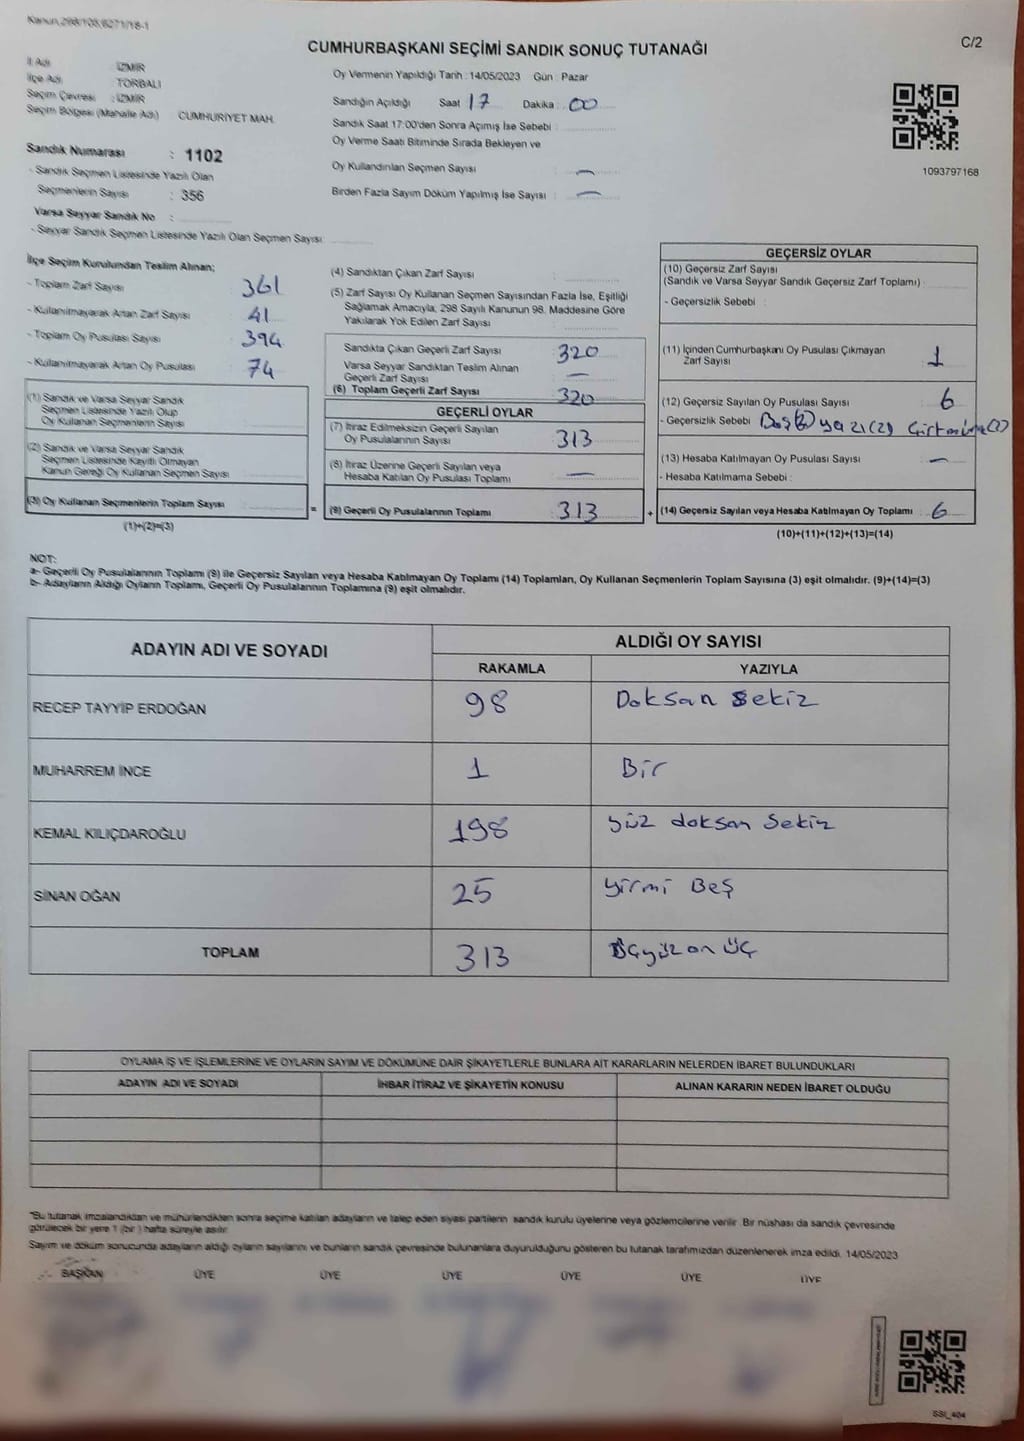 Kanun,298/105,6271/18-1
C/2
CUMHURBAŞKANI SEÇİMİ SANDIK SONUÇ TUTANAĞI
İl Adı : İZMİR
İlçe Adı : TORBALI
Seçim Çevresi : İZMİR
Seçim Bölgesi (Mahalle Adı) CUMHURİYET MAH.
Sandık Numarası : 1102
- Sandık Seçmen Listesinde Yazılı Olan
Seçmenlerin Sayısı : 356
Varsa Seyyar Sandık No :
- Seyyar Sandık Seçmen Listesinde Yazılı Olan Seçmen Sayısı:
Oy Vermenin Yapıldığı Tarih : 14/05/2023 Gün : Pazar
Sandığın Açıldığı Saat 17 Dakika : 00
Sandık Saat 17:00'den Sonra Açımış İse Sebebi :
Oy Verme Saati Bitiminde Sırada Bekleyen ve
Oy Kullandırılan Seçmen Sayısı : —
Birden Fazla Sayım Döküm Yapılmış İse Sayısı : —
1093797168
İlçe Seçim Kurulundan Teslim Alınan;
- Toplam Zarf Sayısı 361
- Kullanılmayarak Artan Zarf Sayısı 41
- Toplam Oy Pusulası Sayısı 394
- Kullanılmayarak Artan Oy Pusulası 74
(1) Sandık ve Varsa Seyyar Sandık
Seçmen Listesinde Yazılı Olup
Oy Kullanan Seçmenlerin Sayısı
(2) Sandık ve Varsa Seyyar Sandık
Seçmen Listesinde Kayıtlı Olmayan
Kanun Gereği Oy Kullanan Seçmen Sayısı
(3) Oy Kullanan Seçmenlerin Toplam Sayısı =
(1)+(2)=(3)
(4) Sandıktan Çıkan Zarf Sayısı :
(5) Zarf Sayısı Oy Kullanan Seçmen Sayısından Fazla İse, Eşitliği
Sağlamak Amacıyla, 298 Sayılı Kanunun 98. Maddesine Göre
Yakılarak Yok Edilen Zarf Sayısı :
Sandıkta Çıkan Geçerli Zarf Sayısı 320
Varsa Seyyar Sandıktan Teslim Alınan
Geçerli Zarf Sayısı —
(6) Toplam Geçerli Zarf Sayısı 320
GEÇERLİ OYLAR
(7) İtiraz Edilmeksizin Geçerli Sayılan
Oy Pusulalarının Sayısı 313
(8) İtiraz Üzerine Geçerli Sayılan veya
Hesaba Katılan Oy Pusulası Toplamı —
(9) Geçerli Oy Pusulalarının Toplamı 313 +
GEÇERSİZ OYLAR
(10) Geçersiz Zarf Sayısı
(Sandık ve Varsa Seyyar Sandık Geçersiz Zarf Toplamı) :
- Geçersizlik Sebebi :
(11) İçinden Cumhurbaşkanı Oy Pusulası Çıkmayan
Zarf Sayısı 1
(12) Geçersiz Sayılan Oy Pusulası Sayısı 6
- Geçersizlik Sebebi yazı(2)
(13) Hesaba Katılmayan Oy Pusulası Sayısı —
- Hesaba Katılmama Sebebi :
(14) Geçersiz Sayılan veya Hesaba Katılmayan Oy Toplamı 6
(10)+(11)+(12)+(13)=(14)
NOT:
a- Geçerli Oy Pusulalarının Toplamı (9) ile Geçersiz Sayılan veya Hesaba Katılmayan Oy Toplamı (14) Toplamları, Oy Kullanan Seçmenlerin Toplam Sayısına (3) eşit olmalıdır. (9)+(14)=(3)
b- Adayların Aldığı Oyların Toplamı, Geçerli Oy Pusulalarının Toplamına (9) eşit olmalıdır.
ADAYIN ADI VE SOYADI
ALDIĞI OY SAYISI
RAKAMLA YAZIYLA
RECEP TAYYİP ERDOĞAN 98 Doksan sekiz
MUHARREM İNCE 1 Bir
KEMAL KILIÇDAROĞLU 198 yüz doksan sekiz
SİNAN OĞAN 25 yirmi Beş
TOPLAM 313 üçyüz on üç
OYLAMA İŞ VE İŞLEMLERİNE VE OYLARIN SAYIM VE DÖKÜMÜNE DAİR ŞİKAYETLERLE BUNLARA AİT KARARLARIN NELERDEN İBARET BULUNDUKLARI
ADAYIN ADI VE SOYADI İHBAR İTİRAZ VE ŞİKAYETİN KONUSU ALINAN KARARIN NEDEN İBARET OLDUĞU
*Bu tutanak imzalandıktan ve mühürlendikten sonra seçime katılan adayların ve talep eden siyasi partilerin sandık kurulu üyelerine veya gözlemcilerine verilir. Bir nüshası da sandık çevresinde
görülecek bir yere 1 (bir) hafta süreyle asılır.
Sayım ve döküm sonucunda adayların aldığı oyların sayılarını ve bunların sandık çevresinde bulunanlara duyurulduğunu gösteren bu tutanak tarafımızdan düzenlenerek imza edildi. 14/05/2023
BAŞKAN ÜYE ÜYE ÜYE ÜYE ÜYE ÜYE
SSI_404